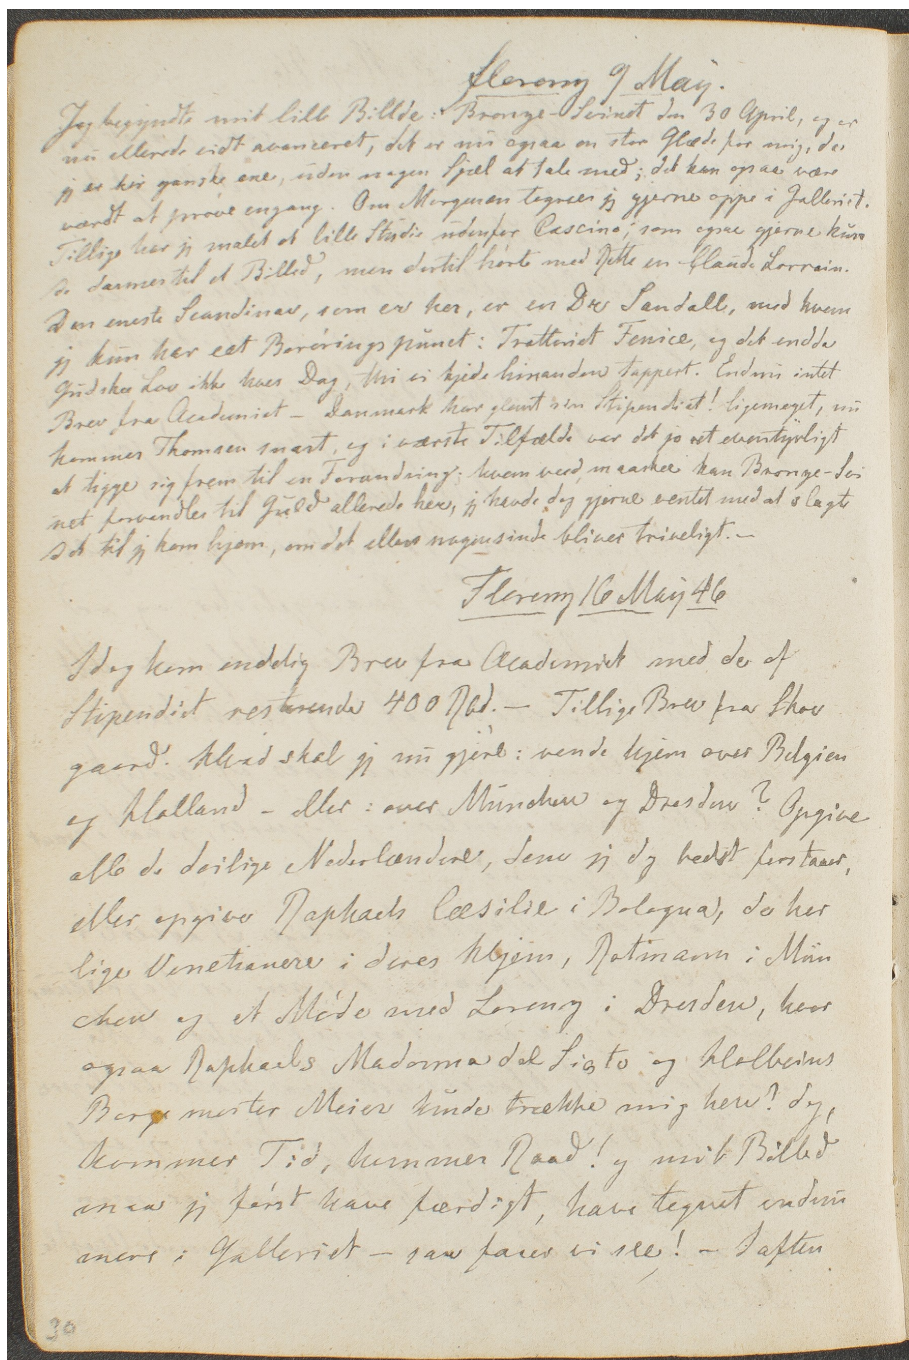 Florenz 9 May.
Jeg begyndte mit lille Billde: Bronze-Svinet den 30 April, og er
nu allerede vidt avanceret, det er nu ogsaa en stor Glæde for mig, da
jeg er her ganske ene, uden nogen Sjæl at tale med; det kan ogsaa være
værdt at prøve engang. Om Morgenen tegner jeg gjerne oppe i Galleriet.
Tillige har jeg malet et lille Studie udenfor Cascino, som ogsaa gjerne kun
de dannes til et Billed, men dertil hørte med Rette en Claude Lorrain.
Den eneste Scandinav, som er her, er en Dr Sandall, med hvem
jeg kun har eet Berøringspunct: Tratteriet Fenice, og det endda
Gudskee Lov ikke hver Dag, thi vi kjede hinanden tappert. Endnu intet
Brev fra Academiet – Danmark har glemt sin Stipendiat! ligemeget, nu
kommer Thomsen snart, og i værste Tilfælde var det jo ret eventyrligt
at tigge sig frem til en Forandring; hvem veed, maaskee kan Bronze-Svi
net forvandles til Guld allerede her, jeg havde dog gjerne ventet med at slagte
det til jeg kom hjem, om det ellers nogensinde bliver triveligt. –
Florenz 16 May 46
Idag kom endelig Brev fra Academiet med de af
Stipendiet resterende 400 Rbd. – Tillige Brev fra Skov
gaard. Hvad skal jeg nu gjøre: vende hjem over Belgien
og Holland – eller: over München og Dresden? Opgive
alle de deilige Nederlændere, dem jeg dog bedst forstaaer,
eller opgive Raphaels Cæsilie i Bologna, de her
lige Venetianere i deres Hjem, Rotmann i Mün
chen og et Møde med Lorenz i Dresden, hvor
ogsaa Raphaels Madonna del Sisto og Holbeins
Borgemester Meier kunde trække mig hen? dog,
kommer Tid, kommer Raad! og mit Billed
maa jeg først have færdigt, have tegnet endnu
mere i Galleriet – saa faaer vi see! – Iaften
30